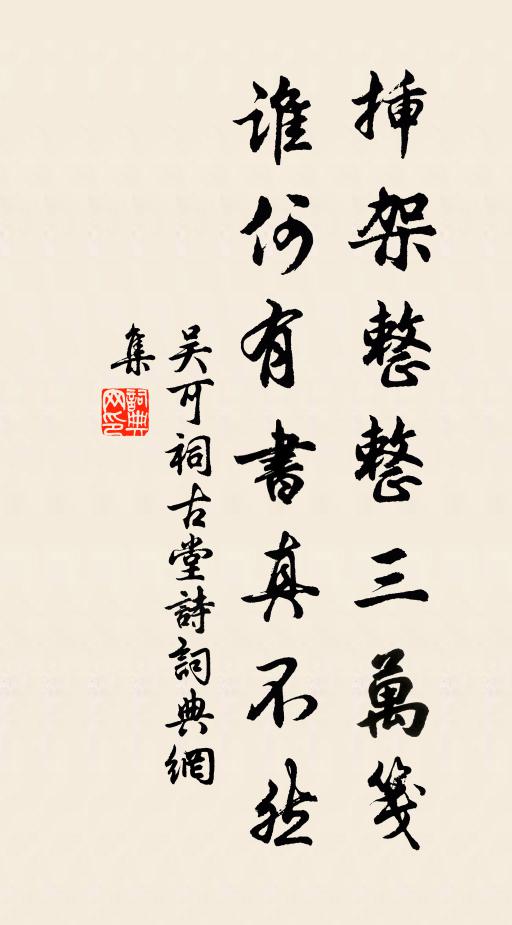 插架整整三萬箋
誰何有書真不然
吴可祠古堂詩詞典網
集
詞典
网印